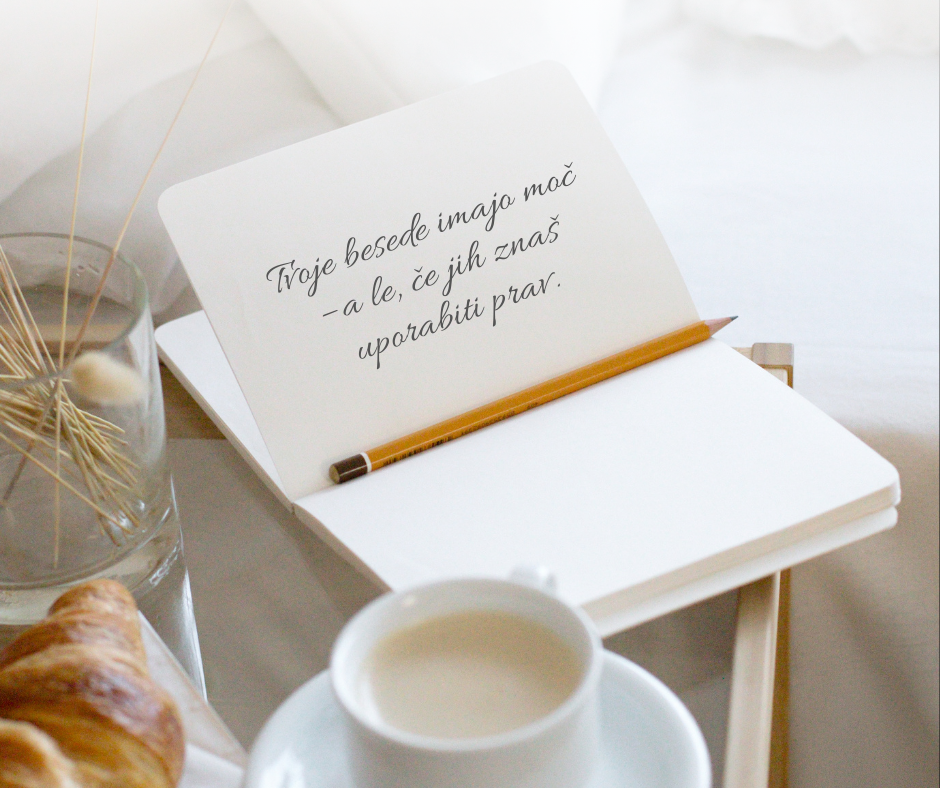 Tvoje besede imajo moč
- a le, če jih znaš
uporabiti prav.